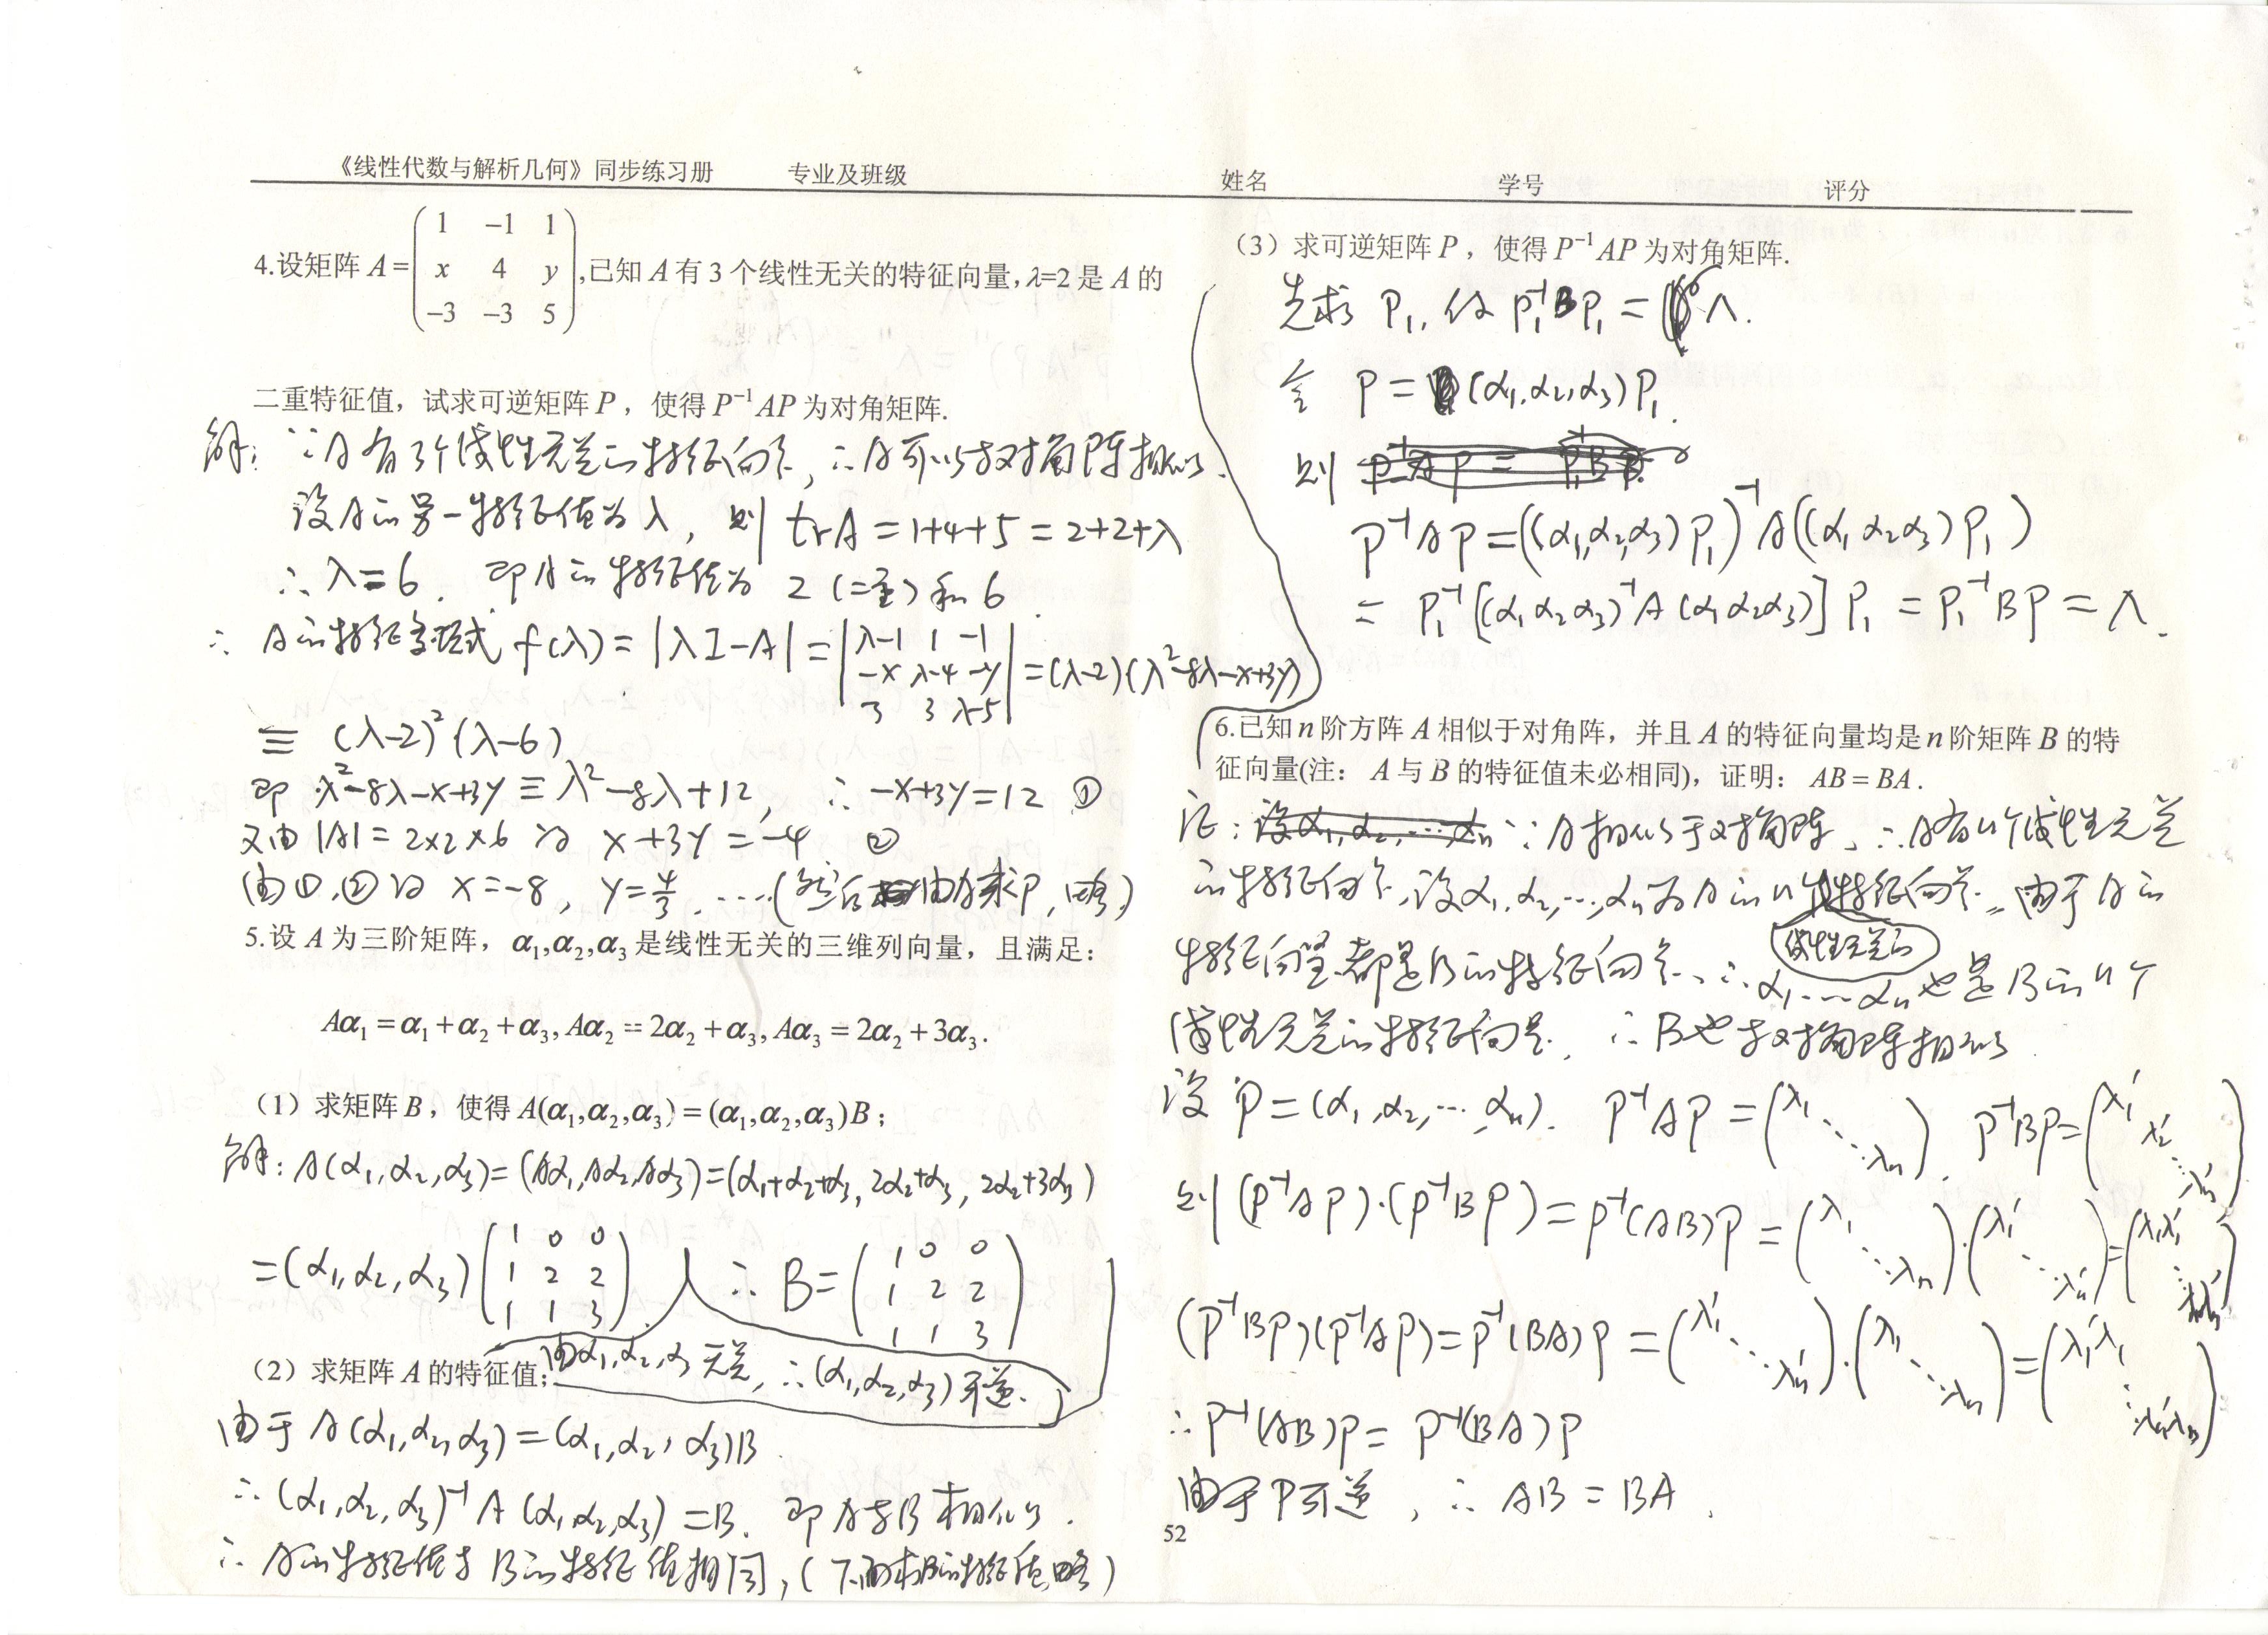 《线性代数与解析几何》同步练习册 专业及班级 姓名 学号 评分
4.设矩阵 A=(1 −1 1; x 4 y; −3 −3 5),已知 A 有 3 个线性无关的特征向量,λ=2 是 A 的
二重特征值，试求可逆矩阵 P，使得 P⁻¹AP 为对角矩阵.
解：∵A有3个线性无关的特征向量，∴A可以与对角阵相似.
设A的另一特征值为λ，则 trA=1+4+5=2+2+λ
∴λ=6. 即A的特征值为 2（二重）和6.
∴ A的特征多项式 f(λ)=|λI−A|=|λ−1 1 −1; −x λ−4 −y; 3 3 λ−5|=(λ−2)(λ²−8λ−x+3y)
≡ (λ−2)²(λ−6)
即 λ²−8λ−x+3y≡λ²−8λ+12, ∴ −x+3y=12 ①
又由 |A|=2×2×6 得 x+3y=−4 ②
由①,②得 x=−8, y=4/3, ....(然后由A求P,略)
5.设 A 为三阶矩阵，α₁,α₂,α₃ 是线性无关的三维列向量，且满足：
Aα₁=α₁+α₂+α₃, Aα₂=2α₂+α₃, Aα₃=2α₂+3α₃.
（1）求矩阵 B，使得 A(α₁,α₂,α₃)=(α₁,α₂,α₃)B；
解：A(α₁,α₂,α₃)=(Aα₁,Aα₂,Aα₃)=(α₁+α₂+α₃, 2α₂+α₃, 2α₂+3α₃)
=(α₁,α₂,α₃)(1 0 0; 1 2 2; 1 1 3). ∴ B=(1 0 0; 1 2 2; 1 1 3)
由α₁,α₂,α₃无关，∴(α₁,α₂,α₃)可逆.
（2）求矩阵 A 的特征值；
由于 A(α₁,α₂,α₃)=(α₁,α₂,α₃)B
∴ (α₁,α₂,α₃)⁻¹A(α₁,α₂,α₃)=B. 即A与B相似.
∴ A的特征值与B的特征值相同,(下面求B的特征值,略)
（3）求可逆矩阵 P，使得 P⁻¹AP 为对角矩阵.
先求 P₁, 使 P₁⁻¹BP₁=Λ.
令 P=(α₁,α₂,α₃)P₁.
则
P⁻¹AP=((α₁,α₂,α₃)P₁)⁻¹A((α₁α₂α₃)P₁)
=P₁⁻¹[(α₁α₂α₃)⁻¹A(α₁α₂α₃)]P₁=P₁⁻¹BP=Λ.
6.已知 n 阶方阵 A 相似于对角阵，并且 A 的特征向量均是 n 阶矩阵 B 的特
征向量(注：A 与 B 的特征值未必相同)，证明：AB=BA.
证：设α₁,α₂,…αₙ ∵A相似于对角阵，∴A有n个线性无关
的特征向量,设α₁,α₂,…,αₙ为A的n个线性无关的特征向量. 由于A的
特征向量都是B的特征向量、∴α₁…αₙ也是B的n个
线性无关的特征向量, ∴B也与对角阵相似.
设 P=(α₁,α₂,…,αₙ). P⁻¹AP=(λ₁ ⋱ λₙ). P⁻¹BP=(λ₁′ λ₂′ ⋱ λₙ′)
则 (P⁻¹AP)·(P⁻¹BP)=P⁻¹(AB)P=(λ₁ ⋱ λₙ)·(λ₁′ ⋱ λₙ′)=(λ₁λ₁′ ⋱ λₙλₙ′)
(P⁻¹BP)(P⁻¹AP)=P⁻¹(BA)P=(λ₁′ ⋱ λₙ′)·(λ₁ ⋱ λₙ)=(λ₁′λ₁ ⋱ λₙ′λₙ)
∴P⁻¹(AB)P=P⁻¹(BA)P
由于P可逆，∴ AB=BA.
52